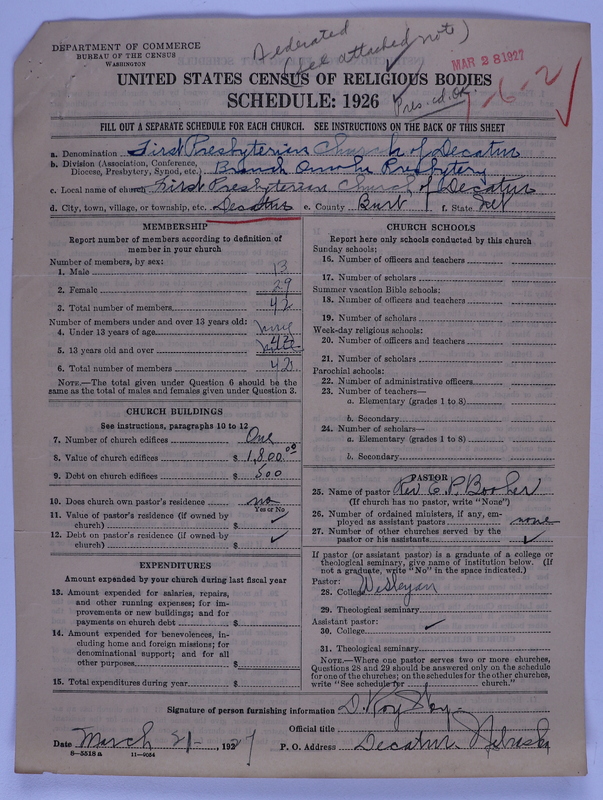 Federated
(See attached note)
DEPARTMENT OF COMMERCE
BUREAU OF THE CENSUS
WASHINGTON
MAR 28 1927
UNITED STATES CENSUS OF RELIGIOUS BODIES
SCHEDULE: 1926
Pres. cd. OK
7-6-21
FILL OUT A SEPARATE SCHEDULE FOR EACH CHURCH. SEE INSTRUCTIONS ON THE BACK OF THIS SHEET
a. Denomination First Presbyterian Church of Decatur
b. Division (Association, Conference, Diocese, Presbytery, Synod, etc.) Branch Omaha Presbytery
c. Local name of church First Presbyterian Church of Decatur
d. City, town, village, or township, etc. Decatur e. County Burt f. State Neb
MEMBERSHIP
Report number of members according to definition of
member in your church
Number of members, by sex:
1. Male 13
2. Female 29
3. Total number of members 42
Number of members under and over 13 years old:
4. Under 13 years of age none
5. 13 years old and over 42
6. Total number of members 42
NOTE.—The total given under Question 6 should be the
same as the total of males and females given under Question 3.
CHURCH BUILDINGS
See instructions, paragraphs 10 to 12
7. Number of church edifices One
8. Value of church edifices $ 1,800.00
9. Debt on church edifices $ 500
10. Does church own pastor's residence no
Yes or No
11. Value of pastor's residence (if owned by
church) $ ✓
12. Debt on pastor's residence (if owned by
church) $ ✓
EXPENDITURES
Amount expended by your church during last fiscal year
13. Amount expended for salaries, repairs,
and other running expenses; for im-
provements or new buildings; and for
payments on church debt $
14. Amount expended for benevolences, in-
cluding home and foreign missions; for
denominational support; and for all
other purposes $
15. Total expenditures during year $
CHURCH SCHOOLS
Report here only schools conducted by this church
Sunday schools:
16. Number of officers and teachers
17. Number of scholars
Summer vacation Bible schools:
18. Number of officers and teachers
19. Number of scholars
Week-day religious schools:
20. Number of officers and teachers
21. Number of scholars
Parochial schools:
22. Number of administrative officers
23. Number of teachers—
a. Elementary (grades 1 to 8)
b. Secondary
24. Number of scholars—
a. Elementary (grades 1 to 8)
b. Secondary
PASTOR
25. Name of pastor Rev C. P. Booher
(If church has no pastor, write "None")
26. Number of ordained ministers, if any, em-
ployed as assistant pastors none
27. Number of other churches served by the
pastor or his assistants ✓
If pastor (or assistant pastor) is a graduate of a college or
theological seminary, give name of institution below. (If
not a graduate, write "No" in the space indicated.)
Pastor:
28. College Wesleyan
29. Theological seminary
Assistant pastor:
30. College ✓
31. Theological seminary
NOTE.—Where one pastor serves two or more churches,
Questions 28 and 29 should be answered only on the schedule
for one of the churches; on the schedules for the other churches,
write "See schedule for church."
Signature of person furnishing information D. Roy
Official title
Date March 21- 1927 P. O. Address Decatur, Nebraska
8-5518 a 11-9054